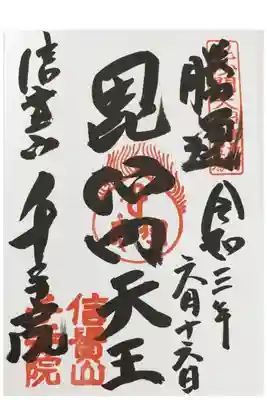 勝運
令和三年
六月十六日
毘沙門天王
信貴山
千手院
信貴山
千手院